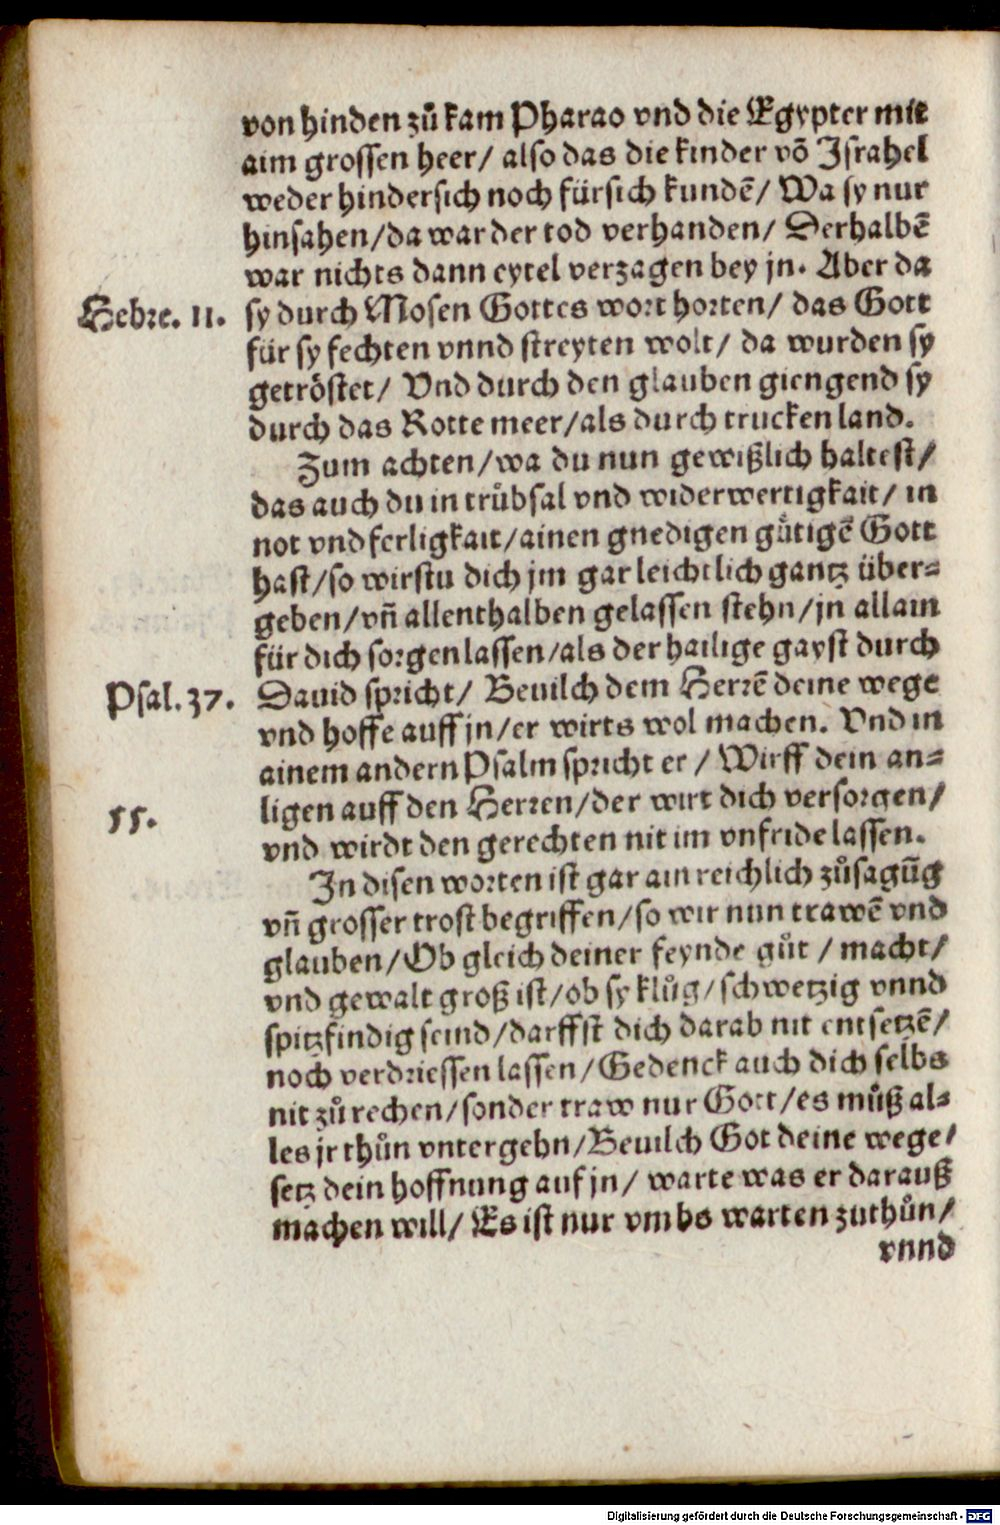 von hinden zů kam Pharao vnd die Egypter mit
aim grossen heer/ also das die kinder võ Israhel
weder hindersich noch fürsich kundẽ/ Wa sy nur
hinsahen/da war der tod verhanden/ Derhalbẽ
war nichts dann eytel verzagen bey jn. Aber da
Hebre. 11. sy durch Mosen Gottes wort horten/ das Gott
für sy fechten vnnd streyten wolt/ da wurden sy
getröstet/ Vnd durch den glauben giengend sy
durch das Rotte meer/als durch trucken land.
Zum achten/wa du nun gewißlich haltest/
das auch du in trůbsal vnd widerwertigkait/ in
not vnd ferligkait/ainen gnedigen gůtigẽ Gott
hast/so wirstu dich jm gar leichtlich gantz über-
geben/vñ allenthalben gelassen stehn/jn allain
für dich sorgen lassen/als der hailige gayst durch
Psal. 37. Dauid spricht/ Beuilch dem Herrẽ deine wege
vnd hoffe auff jn/er wirts wol machen. Vnd in
ainem andern Psalm spricht er/ Wirff dein an-
55. ligen auff den Herren/der wirt dich versorgen/
vnd wirdt den gerechten nit im vnfride lassen.
In disen worten ist gar ain reichlich zůsagũg
vñ grosser trost begriffen/so wir nun trawẽ vnd
glauben/Ob gleich deiner feynde gůt/ macht/
vnd gewalt groß ist/ob sy klůg/schwetzig vnnd
spitzfindig seind/darffst dich darab nit entsetzẽ/
noch verdriessen lassen/Gedenck auch dich selbs
nit zů rechen/sonder traw nur Gott/es můß al-
les jr thůn vntergehn/Beuilch Got deine wege/
setz dein hoffnung auf jn/ warte was er darauß
machen will/ Es ist nur vmbs warten zuthůn/
vnnd
Digitalisierung gefördert durch die Deutsche Forschungsgemeinschaft - DFG